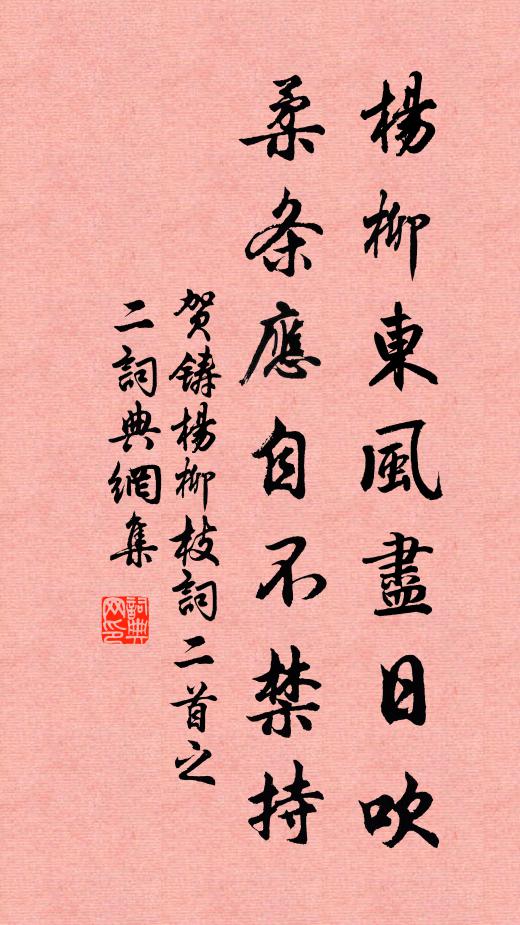 楊柳東風盡日吹
柔条應自不禁持
贺鑄楊柳枝詞二首之
二詞典網集
詞典网印